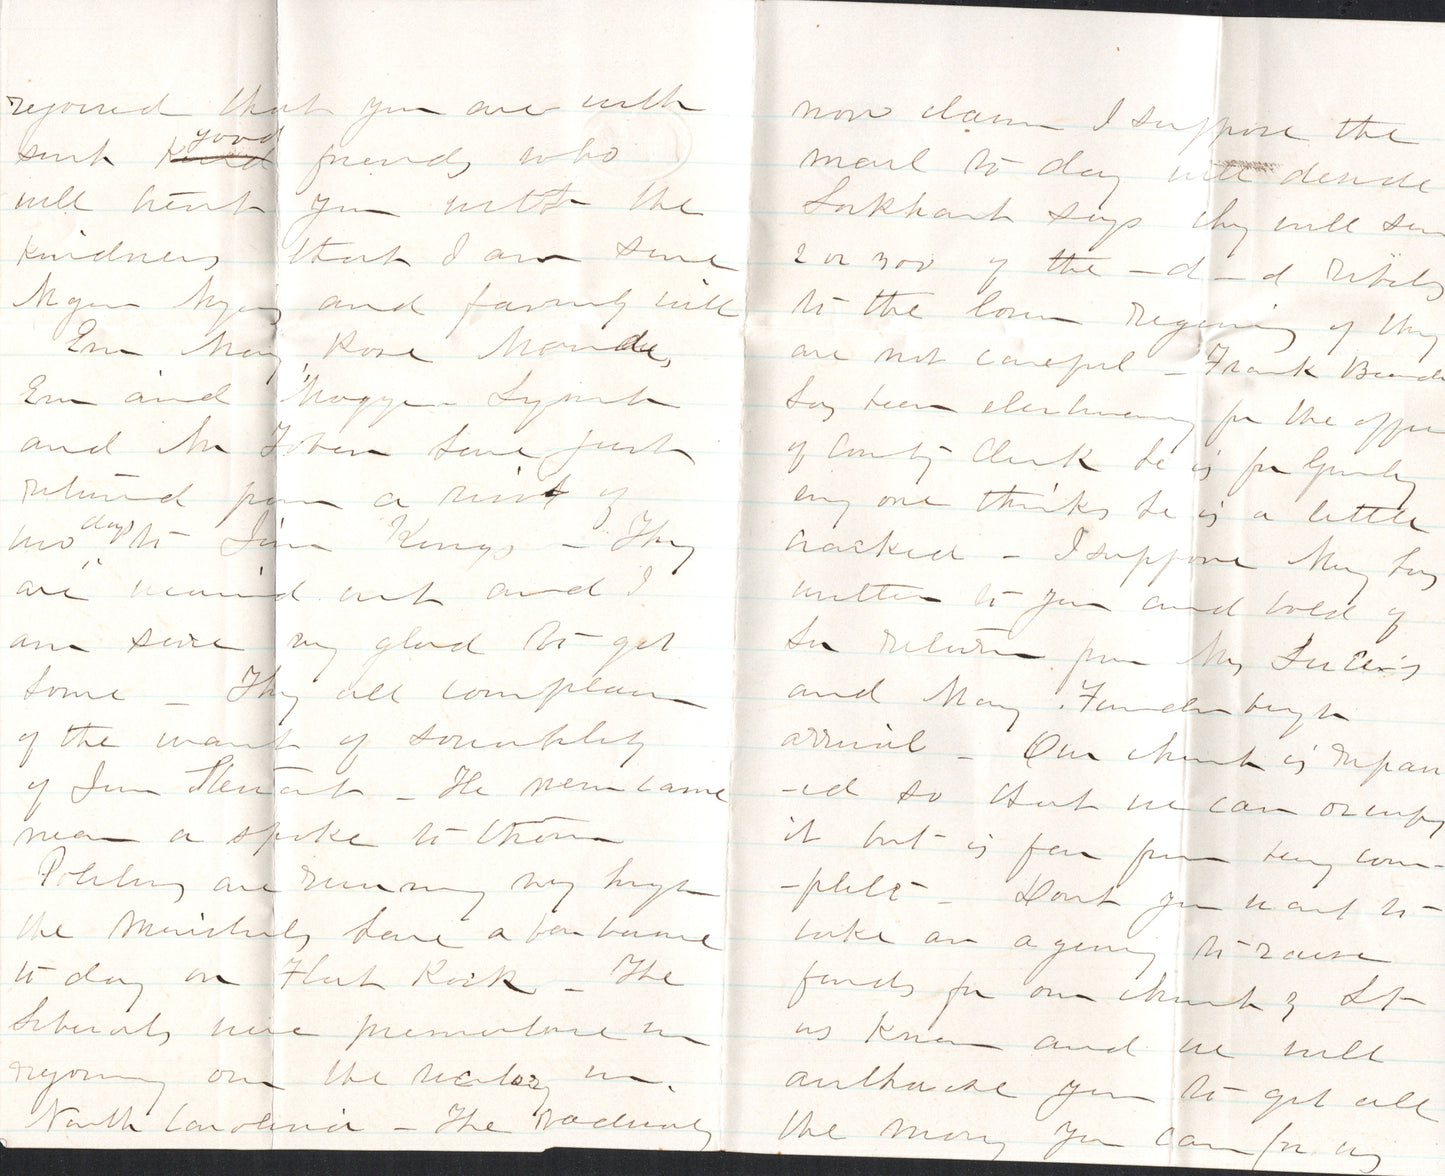 rejoiced that you are with
such good friends who
will treat you with the
kindness that I am sure
Mgen and family will
Em May, Rose
Em and Maggie Lynch
and Mr have just
returned from a visit of
two days to Jim Kings - They
are wearied out and I
am sure very glad to get
home - They all complain
of the want of sociability
of Jim Stewart - He never came
near or spoke to them
Politics are running very high
the Ministerials have a barbecue
to day on Flat Rock - The
Liberals were premature in
rejoicing over the victory in
North Carolina - The radicals
now claim I suppose the
mail to day will decide
Lockhart says they will send
2 or 300 of the -d-d rebels
to the lower regions if they
are not careful - Frank
has been electioneering for the office
of County Clerk he is for Greeley
every one thinks he is a little
cracked - I suppose May has
written to you and told of
her return from Mrs
and May
arrival - Our church is repair
-ed so that we can occupy
it but is far from being com-
-plete - Dont you want to
take an agency to raise
funds for our church? Let
us know and we will
authorise you to get all
the money you can for us